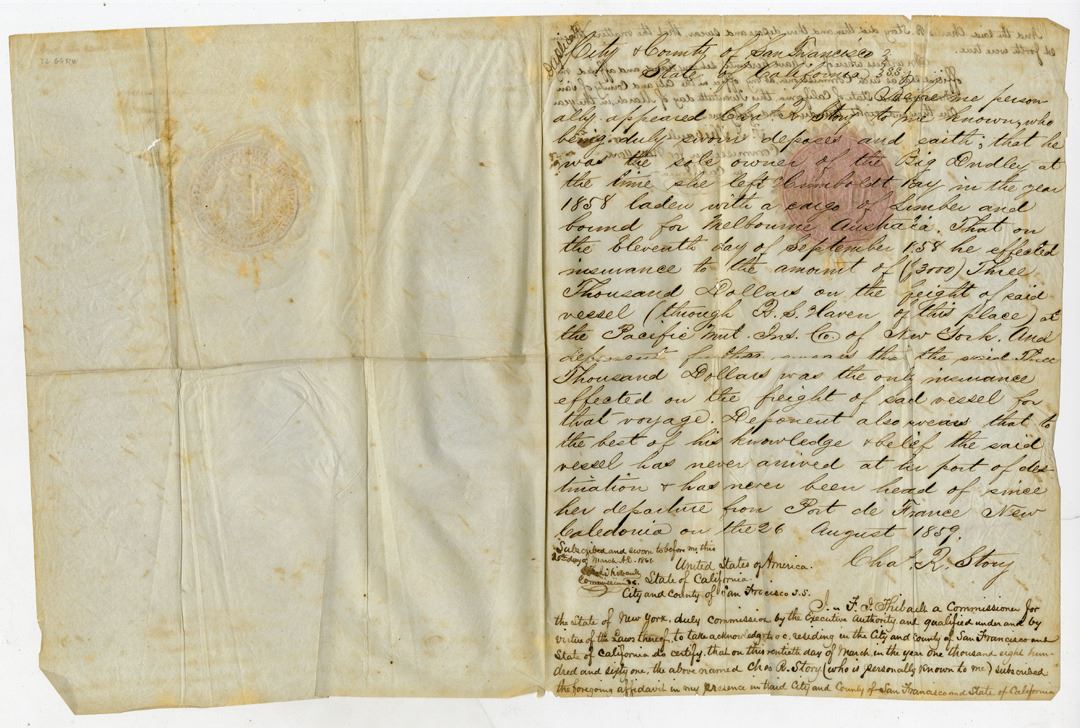 Duplicate
City & County of San Francisco
State of California } ss
Before me person
ally appeared Chas R Story to me known, who
being duly sworn deposes and saith; that he
was the sole owner of the Brig Dudley at
the time she left Humboldt Bay in the year
1858 laden with a cargo of lumber and
bound for Melbourne Australia. That on
the Eleventh day of September 1858 he effected
insurance to the amount of ($3000) Three
Thousand Dollars on the freight of said
vessel (through B. S. Haven of this place) at
the Pacific Mut. Ins. Co of New York. And
deponent further swears that the said Three
Thousand Dollars was the only insurance
effected on the freight of said vessel for
that voyage. Deponent also swears that to
the best of his knowledge & belief the said
vessel has never arrived at her port of des-
tination & has never been heard of since
her departure from Port de France New
Caledonia on the 26 August 1859.
Chas. R. Story
Subscribed and sworn to before me this
day of March A.D. 1861
Commissioner &c.
United States of America.
State of California
City and County of San Francisco S.S.
I, F. J. Thibault a Commissioner for
the State of New York, duly commission by the Executive Authority and qualified under and by
virtue of the Laws thereof, to take acknowledgts &c, residing in the City and County of San Francisco and
State of California do certify, that on this day of March in the year one thousand eight hun-
dred and sixty one, the above named Chas R. Story (who is personally known to me) subscribed
the foregoing affidavit in my presence in said City and County of San Francisco and State of California